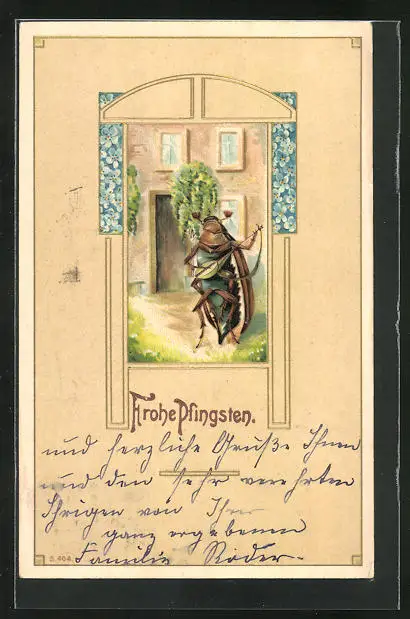 Frohe Pfingsten.
und herzliche Grüße Ihnen
und den sehr verehrten
Ihrigen von Ihrer
ganz ergebenen
Familie Röder.
S. 404.